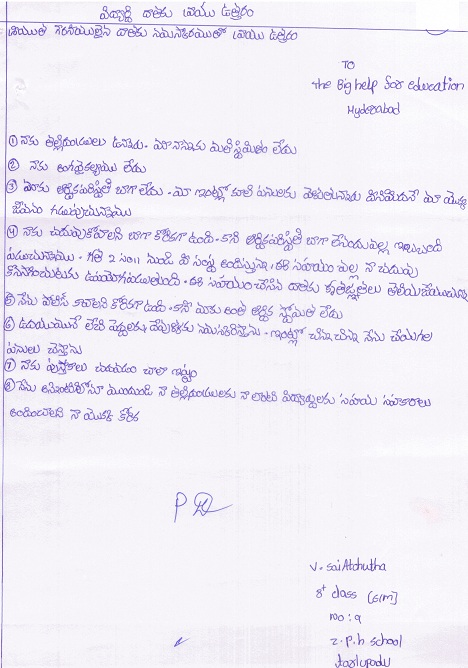 విద్యార్థి దాతకు వ్రాయు ఉత్తరం
గౌరవనీయులైన దాతకు నమస్కారములతో వ్రాయు ఉత్తరం
TO
The Big help for education
Hyderabad
① నాకు తల్లిదండ్రులు ఉన్నారు. మా నాన్నకు మతిస్థిమితం లేదు
② నాకు అంగవైకల్యము లేదు
③ మాకు ఆర్థికపరిస్థితి బాగా లేదు. మా ఇంట్లో కూలి పనులకు వెలుతున్నారు దీనిమీదనే మా యొక్క
జీవనం గడుపుచున్నాము
④ నాకు చదువుకోవాలని బాగా కోరికగా ఉంది. కాని ఆర్థికపరిస్థితి బాగా లేనందువల్ల ఇబ్బంది
పడుచున్నాము. గత 2 సం॥ నుండి మీ సంస్థ అందిస్తున్న ఈ సహాయం వల్ల నా చదువు
కొనసాగించుటకు ఉపయోగపడుతుంది. ఈ సహాయం చేసిన దాతకు కృతజ్ఞతలు తెలియచేయుచున్నాను
⑤ నేను పోలీస్ కావాలని కోరికగా ఉంది. కాని మాకు అంత ఆర్థిక స్థోమత లేదు
⑥ ఉదయమునే లేచి పెద్దలకు, దేవుళ్ళకు నమస్కరిస్తాను. ఇంట్లో చిన్న చిన్న నేను చేయగల
పనులు చేస్తాను
⑦ నాకు పుస్తకాలు చదవడం చాలా ఇష్టం
⑧ నేను అన్నింటిలోనూ ముందుండి నా తల్లిదండ్రులకు నా లాంటి విద్యార్థులకు సహాయ సహకారాలు
అందించాలని నా యొక్క కోరిక
V. sai Atchutha
8th class [E/M]
no: 9
Z.P.H school